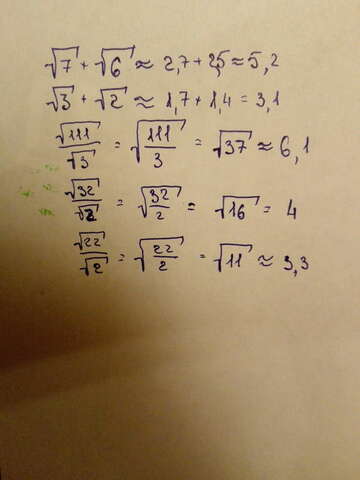 √7 + √6 ≈ 2,7 + 2,5 ≈ 5,2
√3 + √2 ≈ 1,7 + 1,4 = 3,1
√111/√3 = √(111/3) = √37 ≈ 6,1
√32/√2 = √(32/2) = √16 = 4
√22/√2 = √(22/2) = √11 ≈ 3,3